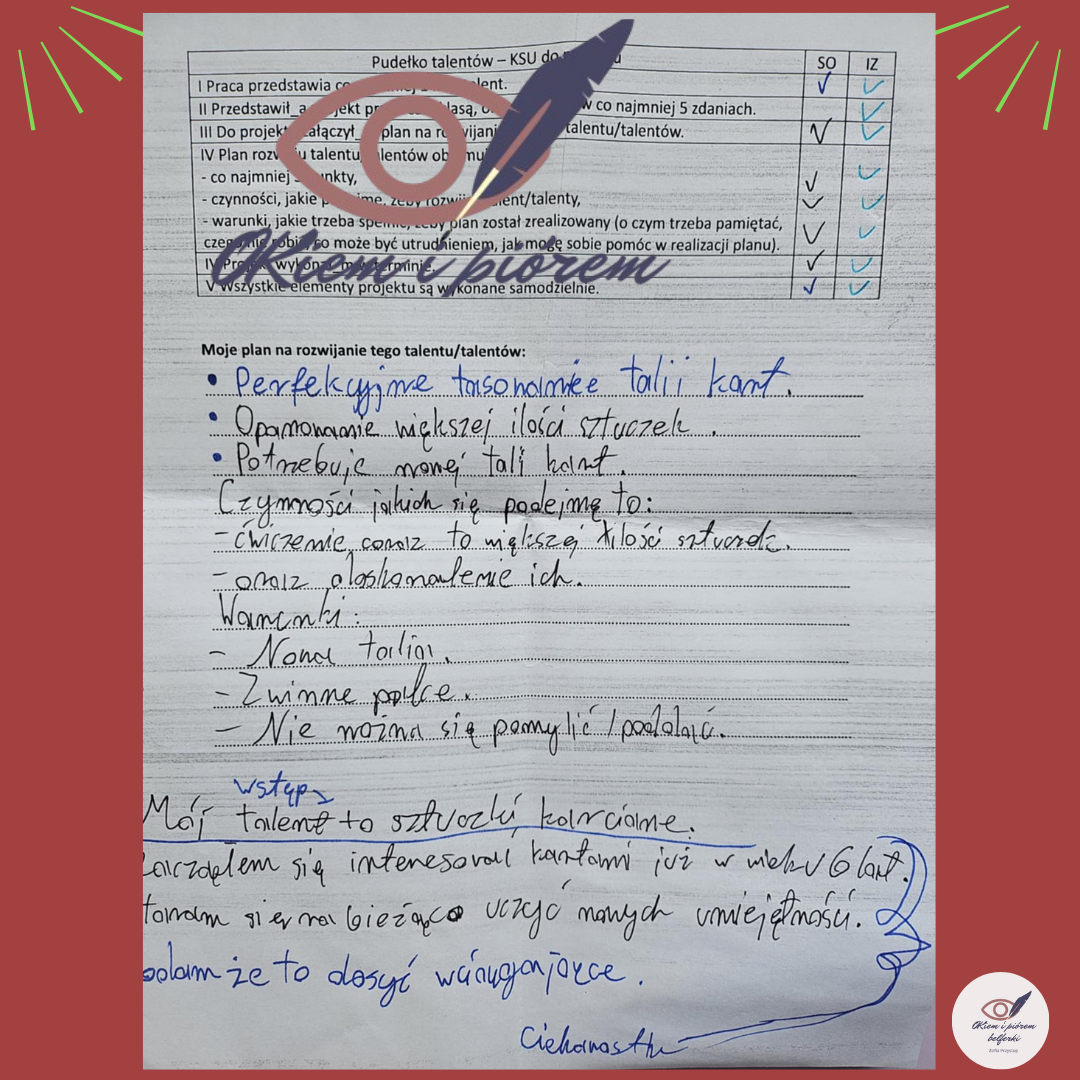 Pudełko talentów – KSU do
SO IZ
I Praca przedstawia co lent.
II Przedstawił_a jekt pr lasą, o w co najmniej 5 zdaniach.
III Do projekt ałączył_ plan na ro ijani talentu/talentów.
IV Plan rozw u talentu lentów ob mu
- co najmniej unkty,
- czynności, jakie ent/talenty,
- warunki, jakie trzeba plan został zrealizowany (o czym trzeba pamiętać,
co może być utrudnieniem, jak mogę sobie pomóc w realizacji planu).
IV wykona terminie.
V Wszystkie elementy projektu są wykonane samodzielnie.
OKiem i piórem
Moje plan na rozwijanie tego talentu/talentów:
• Perfekcyjne tasowanie talii kart.
• Opanowanie większej ilości sztuczek.
• Potrzebuję nowej tali kart.
Czynności jakich się podejmę to:
- ćwiczenie coraz to większej ilości sztuczek.
- oraz doskonalenie ich.
Warunki:
- Nowa talia.
- Zwinne palce.
- Nie można się pomylić / poddać.
wstęp
Mój talent to sztuczki karciane.
zacząłem się interesować kartami już w wieku 6 lat.
staram się na bieżąco uczyć nowych umiejętności.
że to dosyć wciągające.
Ciekawostka
OKiem i piórem
belferki